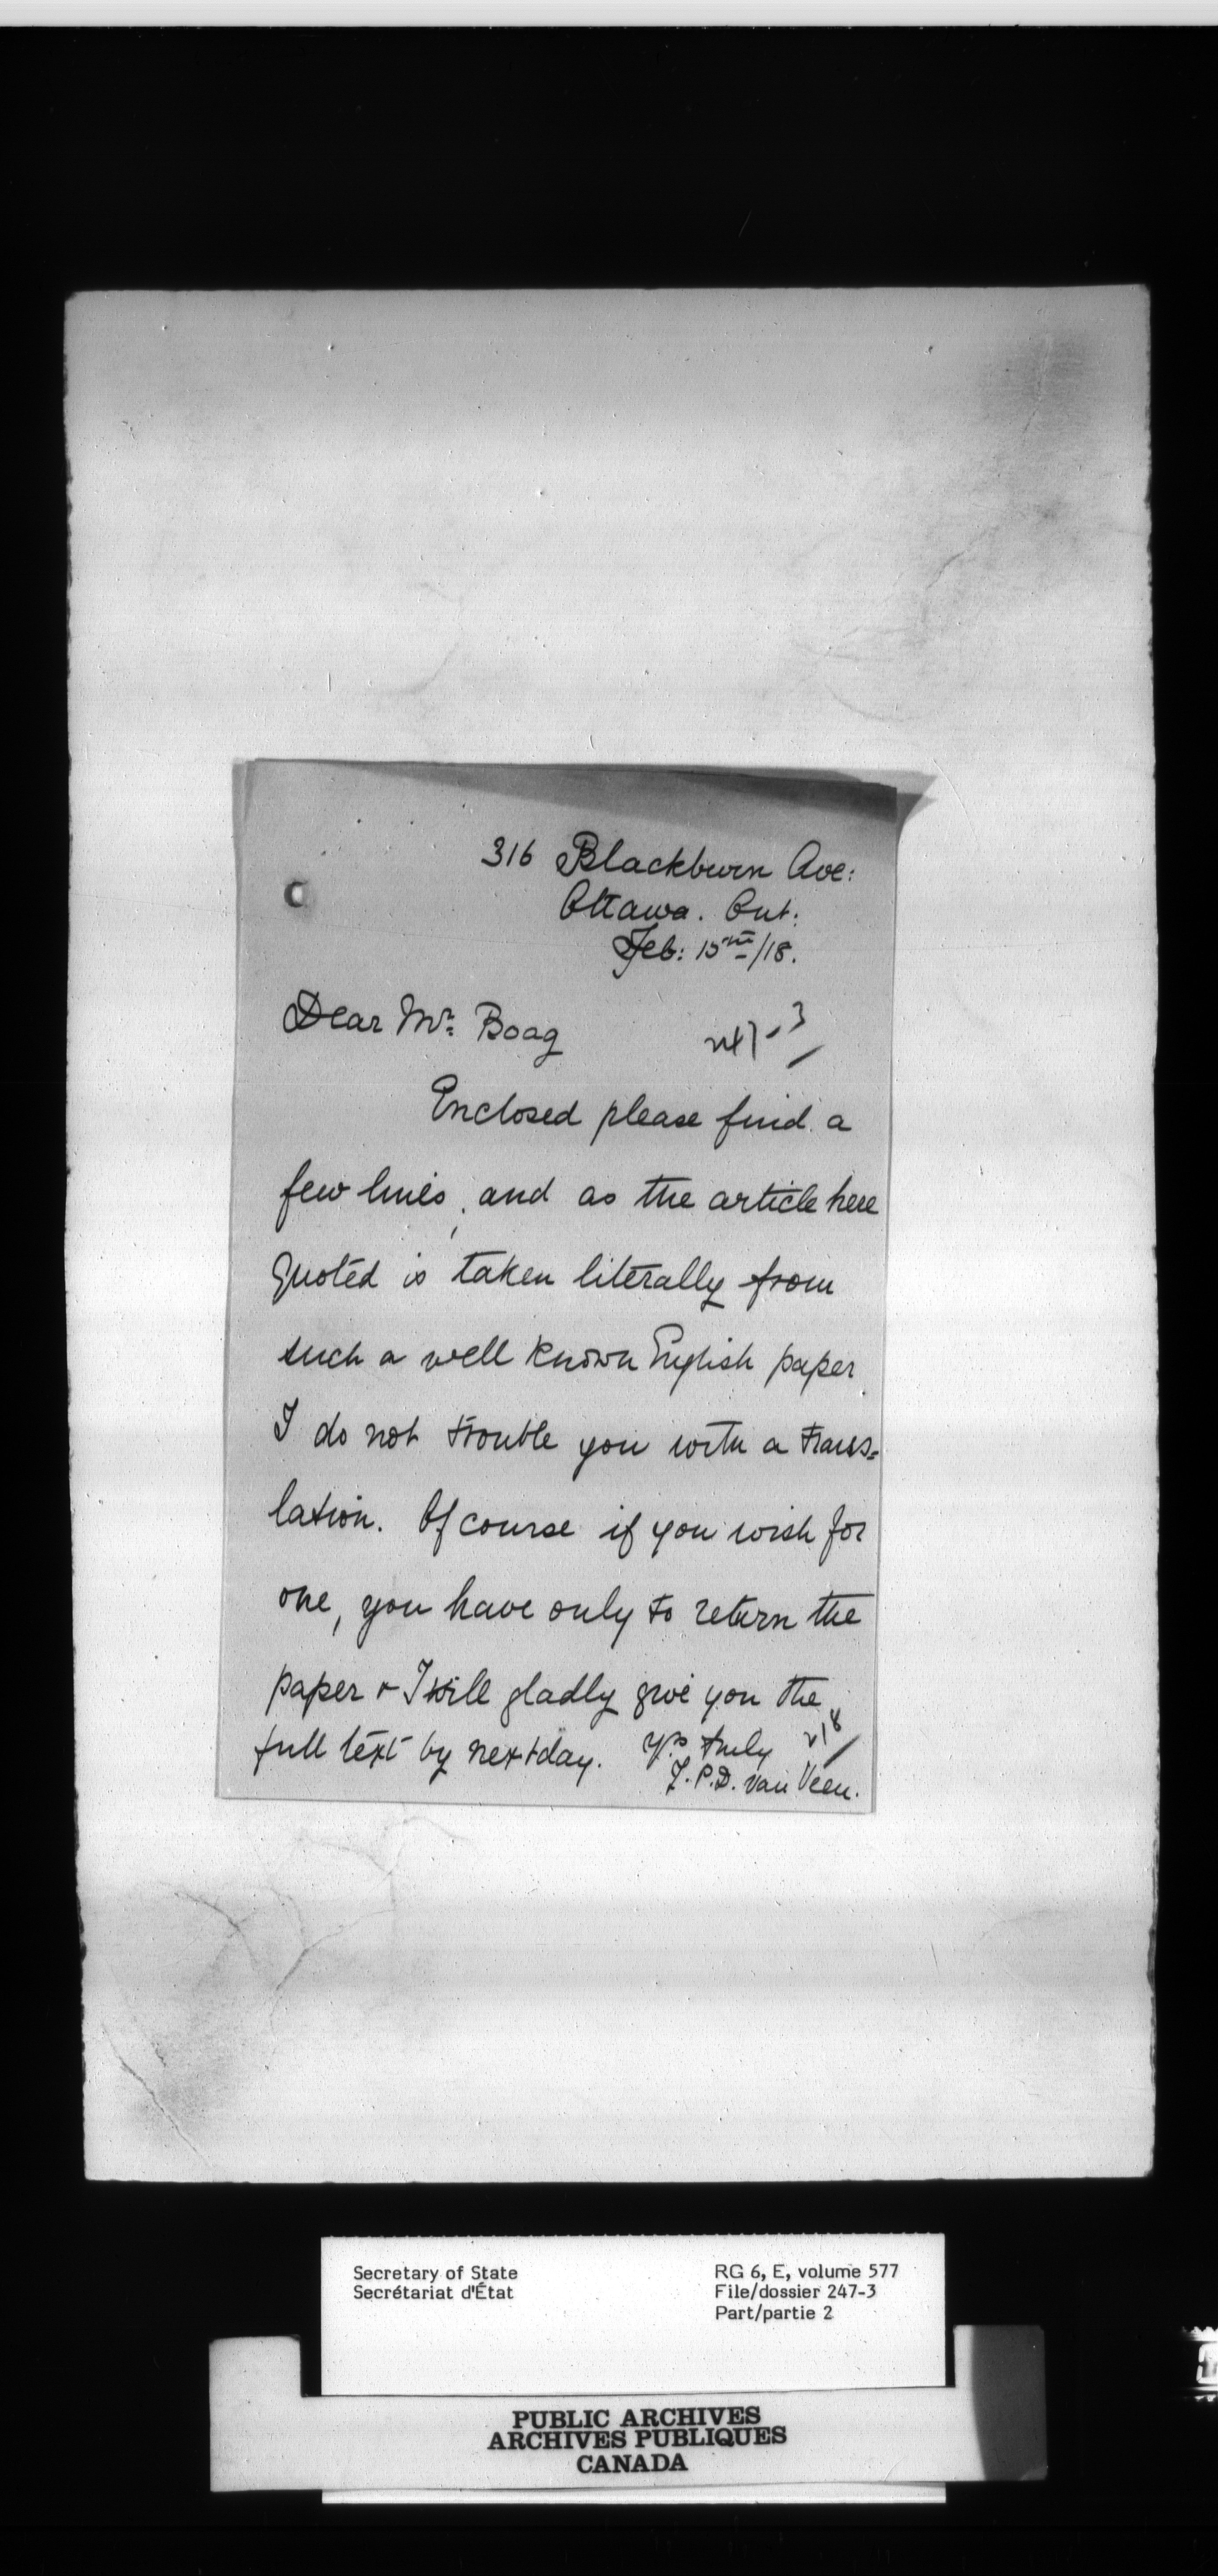 316 Blackburn Ave:
Ottawa. Ont:
Feb: 15th/18.
Dear Mr. Boag
247-3
Enclosed please find a
few lines, and as the article here
quoted is taken literally from
such a well known English paper
I do not trouble you with a trans=
lation. Of course if you wish for
one, you have only to return the
paper & I will gladly give you the
full text by next day. Yrs truly
218
J.P.D. van Veen.
Secretary of State
Secrétariat d'État
RG 6, E, volume 577
File/dossier 247-3
Part/partie 2
PUBLIC ARCHIVES
ARCHIVES PUBLIQUES
CANADA